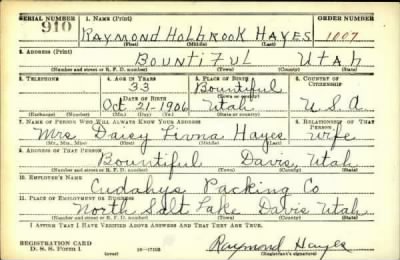 SERIAL NUMBER 1. NAME (Print) ORDER NUMBER
910 RAYMOND HOLBROOK HAYES 1007
(First) (Middle) (Last)
2. ADDRESS (Print)
BOUNTIFUL UTAH
(Number and street or R. F. D. number) (Town) (County) (State)
3. TELEPHONE 4. AGE IN YEARS 5. PLACE OF BIRTH 6. COUNTRY OF CITIZENSHIP
33 Bountiful
DATE OF BIRTH (Town or county)
Oct 21 1906 Utah U.S.A
(Exchange) (Number) (Mo.) (Day) (Yr.) (State or country)
7. NAME OF PERSON WHO WILL ALWAYS KNOW YOUR ADDRESS 8. RELATIONSHIP OF THAT PERSON
Mrs Daisy Hayes wife
(Mr., Mrs., Miss) (First) (Middle) (Last)
9. ADDRESS OF THAT PERSON
Bountiful Davis, Utah
(Number and street or R. F. D. number) (Town) (County) (State)
10. EMPLOYER'S NAME
Cudahys Packing Co
11. PLACE OF EMPLOYMENT OR BUSINESS
North Salt Lake Davis Utah
(Number and street or R. F. D. number) (Town) (County) (State)
I AFFIRM THAT I HAVE VERIFIED ABOVE ANSWERS AND THAT THEY ARE TRUE.
REGISTRATION CARD
D. S. S. FORM 1 (over) Raymond Hayes
(Registrant's signature)